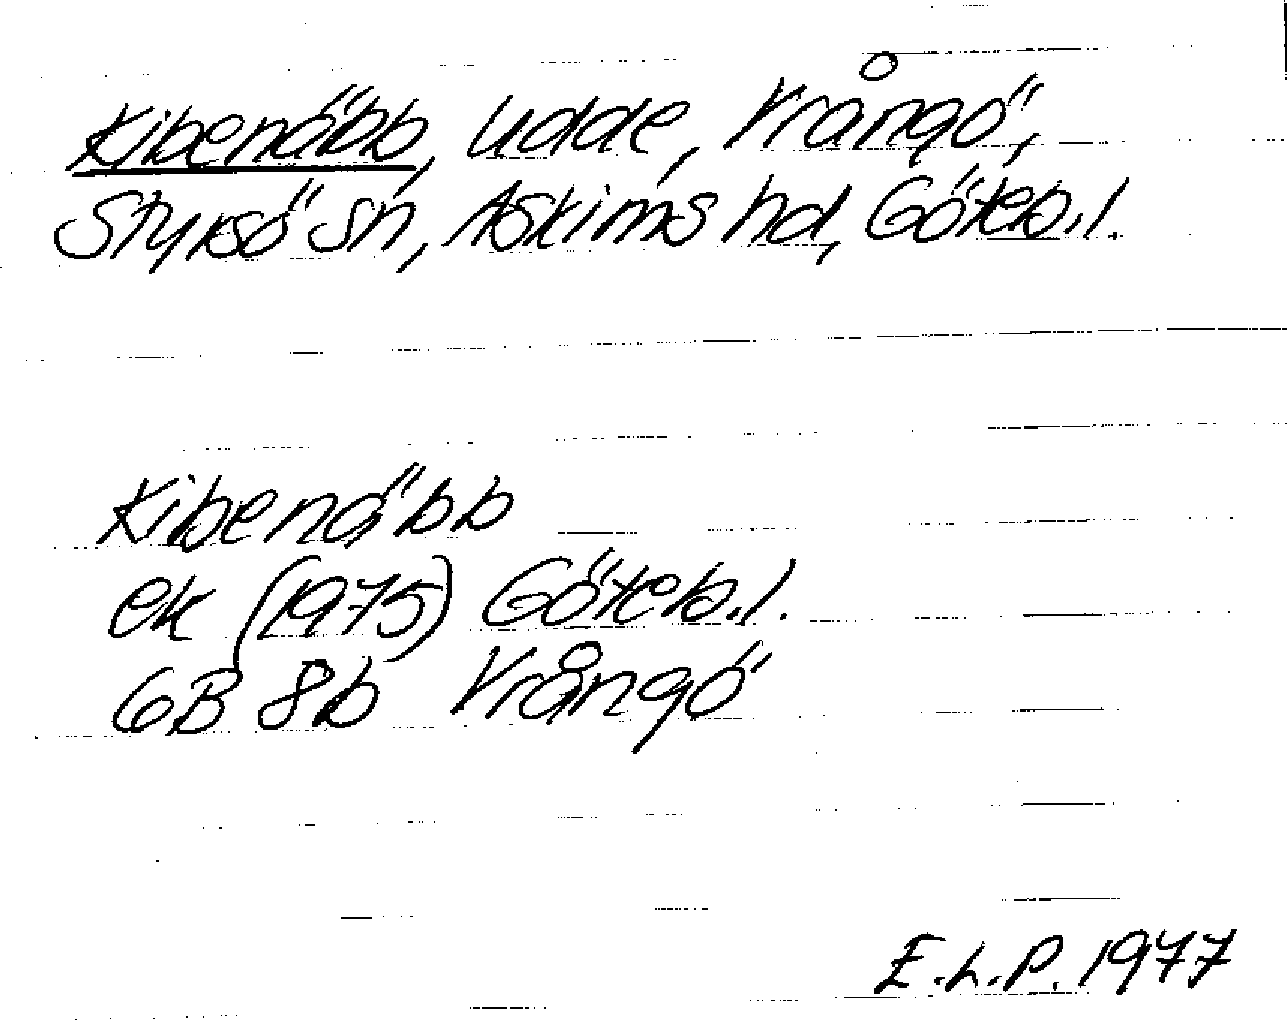 Kibenabb, udde, Vrångö,
Styrsö sn, Askims hd, Göteb.l.
Kibenabb
ek (1975) Göteb.l.
6B 8b Vrångö
E.L.P. 1977